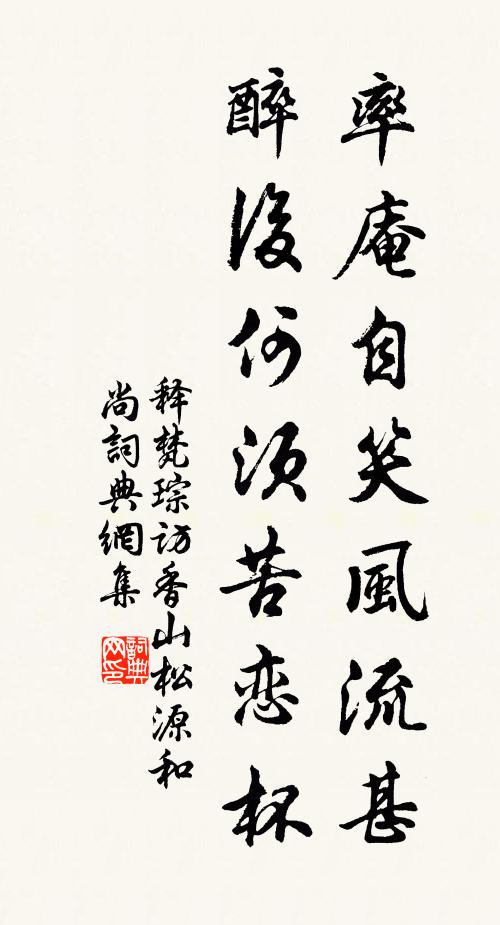 率庵自笑風流甚
醉後何須苦恋杯
释梵琮访香山松源和
尚詞典網集
詞典網印